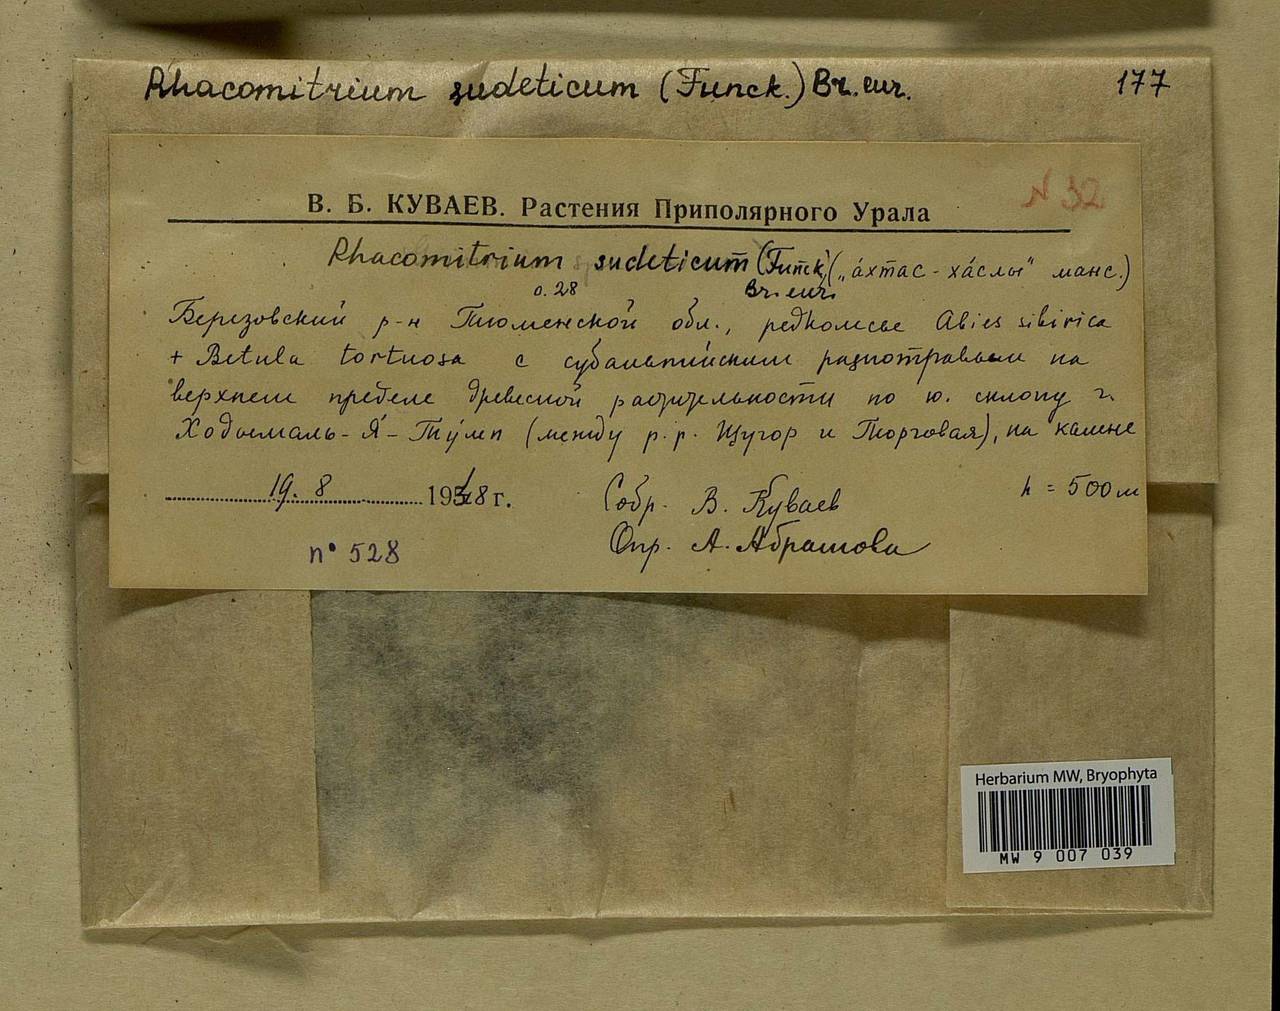 Rhacomitrium sudeticum (Funck.) Br. eur. 177
N 32
В. Б. КУВАЕВ. Растения Приполярного Урала
Rhacomitrium sudeticum (Funck.) („а́хтас - ха́слы" манс.)
о. 28 Br. eur.
Березовский р-н Тюменской обл., редколесье Abies sibirica
+ Betula tortuosa с субальпийским разнотравьем на
верхнем пределе древесной растительности по ю. склону г.
Ходьемаль-Я́-Ту́мп (между р.р. Щугор и Торговая), на камне
19. 8 1948 г. Собр. В. Куваев h = 500 м
n° 528 Опр. А. Абрамова
Herbarium MW, Bryophyta
MW 9 007 039